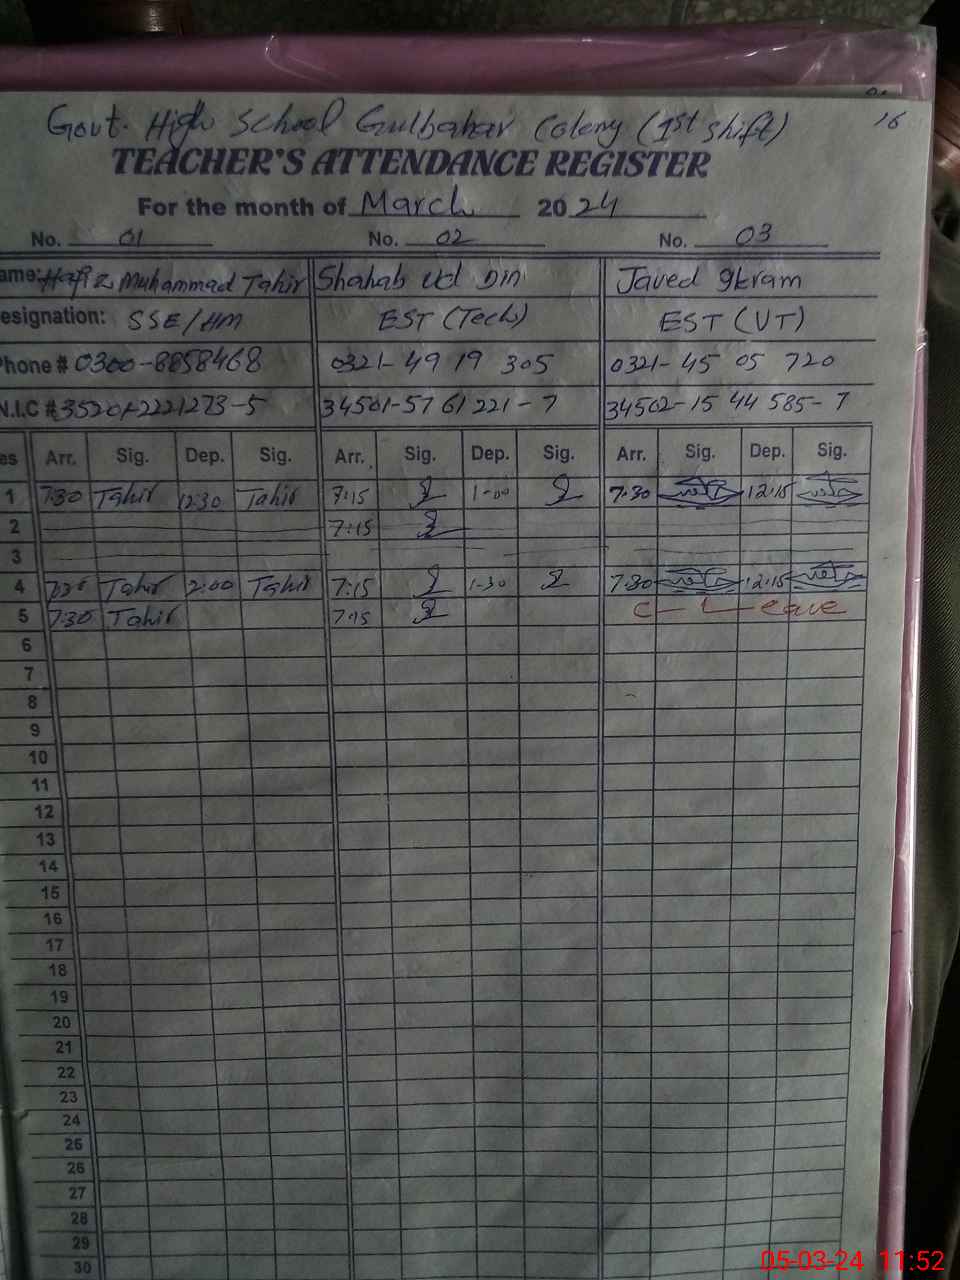 16
Govt. High School Gulbahar Coleny (1st shift)
TEACHER'S ATTENDANCE REGISTER
For the month of March 2024
No. 01 No. 02 No. 03
ame: Hafiz Muhammad Tahir Shahab Ud Din Javed Ikram
esignation: SSE/HM EST (Tech) EST (VT)
Phone # 0300-8858468 0321-49 19 305 0321-45 05 720
N.I.C # 35201-2221273-5 34501-57 61 221-7 34502-15 44 585-7
es Arr. Sig. Dep. Sig. Arr. Sig. Dep. Sig. Arr. Sig. Dep. Sig.
1 7:30 Tahir 12:30 Tahir 7:15 1-00 7:30 12:15
2 7:15
3
4 Tahir 2:00 Tahir 7:15 1-30 7:30 12:15
5 7:30 Tahir 7:15 C-Leave
6
7
8
9
10
11
12
13
14
15
16
17
18
19
20
21
22
23
24
25
26
27
28
29
30
05-03-24 11:52